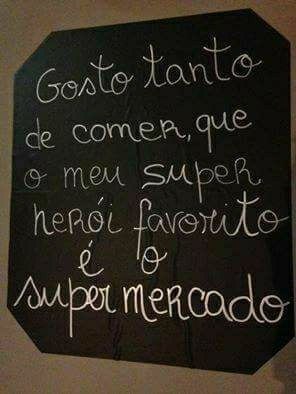 Gosto tanto
de comer, que
o meu super
herói favorito
é o
super mercado